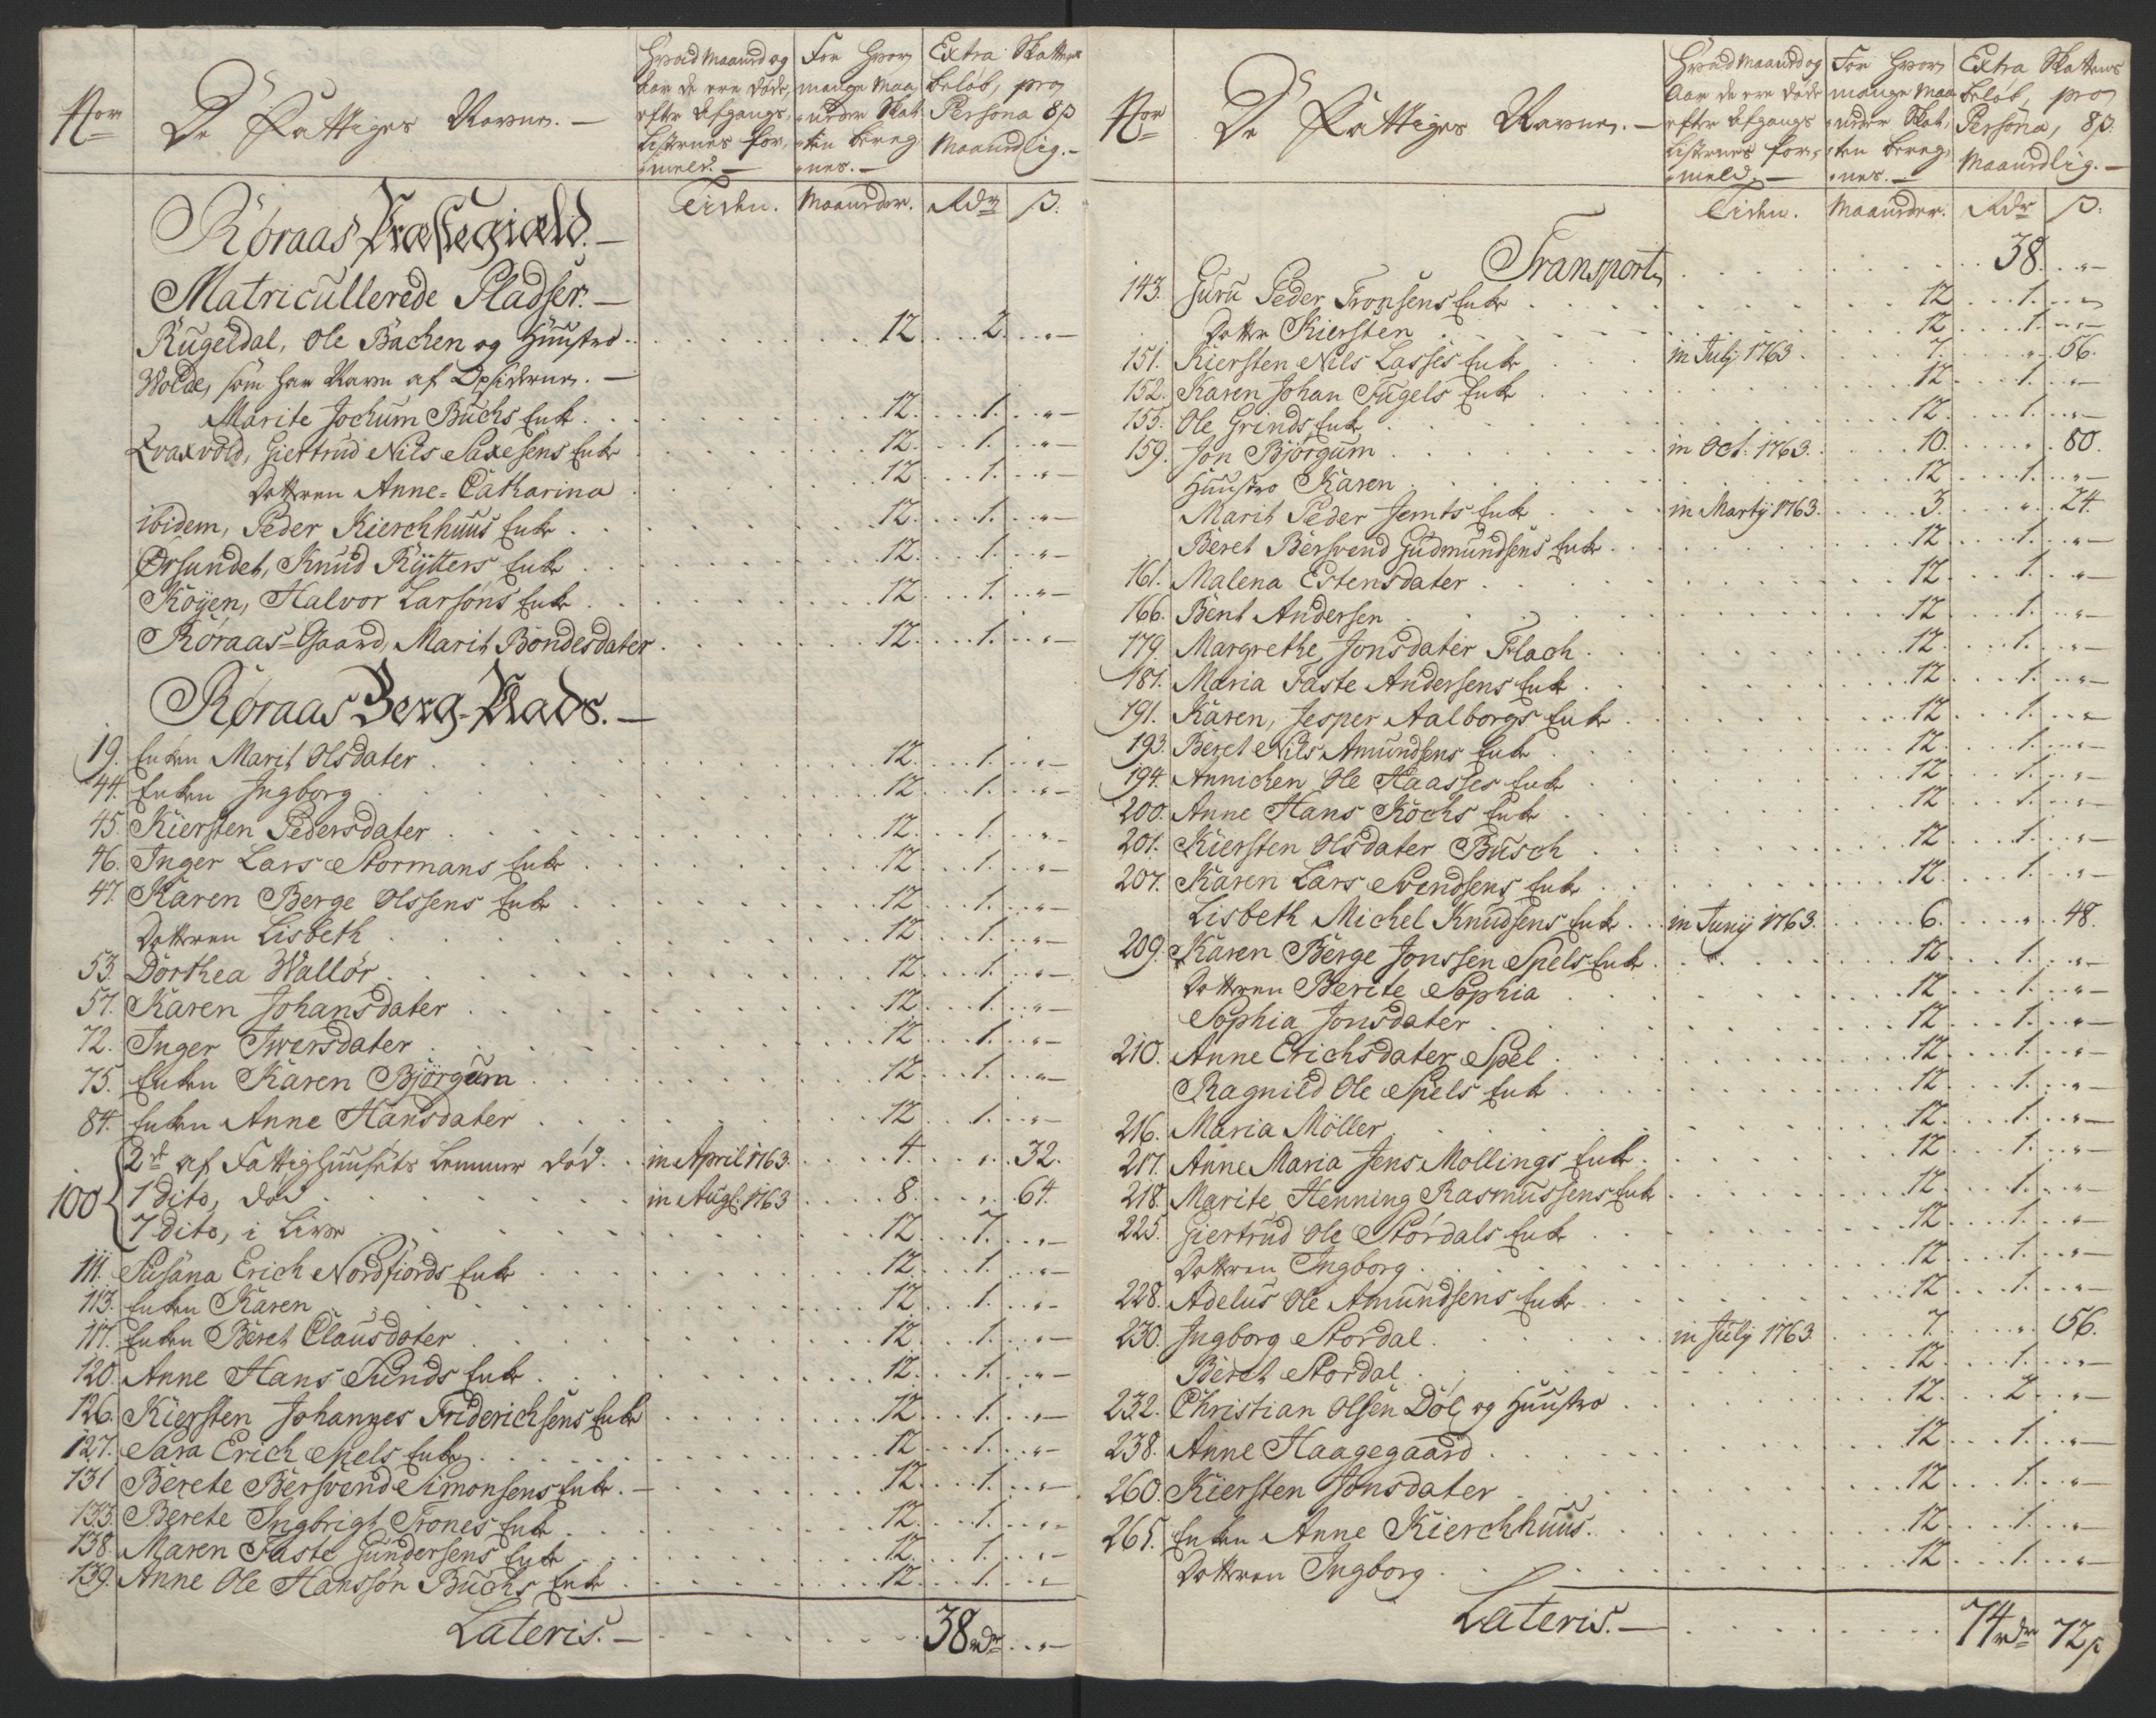 No͞r
De Fattiges Navne. —
Hvad Maaned og
Aar de ere døde,
efter Afgangs,
Listernes for,
meld. —
For hvor
mange Maa,
neder Skat,
ten bereg,
nes. —
Extra Skattens
beløb, pro
Persona 8 ß
Maanedlig. —
Tiden. Maaneder. Rdr ß:
Røraas Præstegiæld. —
Matricullerede Pladser. —
Rugeldal, Ole Bachen og Huustro . . 12. . . 2. . „ —
Wolde, som har Navn af Opsidderne. —
Marite Jochum Buchs Enke . . 12. . . 1. . „ —
Qvaxvold, Giertrud Nils Saxesens Enke . . 12. . . 1. . „ —
Datteren Anne-Catharina . . 12. . . 1. . „ —
ibidem, Peder Kierchhuus Enke . . 12. . . 1. . „ —
Ørsundet, Knud Rytters Enke . . 12. . . 1. . „ —
Køyen, Halvor Larsøns Enke . . 12. . . 1. . „ —
Røraas-Gaard, Marit Bondesdater . . 12. . . 1. . „ —
Røraas Berg-Stads. —
19. Enken Marit Olsdater . . 12. . . 1. . „ —
44. Enken Ingborg . . 12. . . 1. . „ —
45. Kiersten Pedersdater . . 12. . . 1. . „
46. Inger Lars Stormans Enke . . 12. . . 1. . „ —
47. Karen Berge Olssens Enke . . 12. . . 1. . „ —
Datteren Lisbeth . . 12. . . 1. . „ —
53. Dorthea Wallør . . 12. . . 1. . „ —
57. Karen Johansdater . . 12. . . 1. . „ —
72. Inger Iwersdater . . 12. . . 1. . „ —
75. Enken Karen Bjørgum . . 12. . . 1. . „ —
84. Enken Anne Hansdater . . 12. . . 1. . „ —
2de af Fattighuusets Lemmer død . . in April 1763. . . 4. . . „ . 32.
100 1 dito, død . . in Augt: 1763 . . 8. . . „ . 64.
7 dito, i Live . . 12. . . 7. . „ —
111. Susana Erich Nordfiords Enke . . 12. . . 1. . „ —
113. Enken Karen . . 12. . . 1. . „ —
117. Enken Beret Clausdater . . 12. . . 1. . „ —
120. Anne Hans Sunds Enke . . 12. . . 1. . „ —
126. Kiersten Johannes Friderichsens Enke . . 12. . . 1. . „ —
127. Sara Erich Spels Enke . . 12. . . 1. . „ —
131 Berete Bersvend Simonsens Enke. — . . 12. . . 1. . „ —
133. Berete Ingbrigt Trones Enke . . 12. . . 1. . „ —
138. Maren Faste Gundersens Enke . . 12. . . 1. . „ —
139. Anne Ole Hanssøn Buchs Enke . . 12. . . 1. . „ —
Lateris. — . . 38 rdr . . „ —
No͞r
De Fattiges Navne. —
Hvad Maaned og
Aar de ere døde
efter Afgangs
Listernes for,
meld. —
For hvor
mange Maa
neder Skat,
ten bereg,
nes. —
Extra Skattens
beløb, pro
Persona, 8 ß.
Maanedlig. —
Tiden. Maaneder. Rdr ß:
Transport . . 38. . „ —
143. Guru Peder Tronsens Enke . . 12. . . 1. . „ —
Datter Kiersten . . 12. . . 1. . „ —
151. Kiersten Nils Lasses Enke . . in Julij 1763. . . 7. . . „ . 56.
152. Karen Johan Fugels Enke . . 12. . . 1. . „ —
155. Ole Grinds Enke . . 12. . . 1. . „ —
159. Jon Bjørgum . . in Oct: 1763. . . 10. . . „ . 80.
Huustro Karen . . 12. . . 1. . „ —
Marit Peder Jemts Enke . . in Martij 1763. . . 3. . . „ . 24.
Beret Bersvend Gudmundsens Enke . . 12. . . 1. . „ —
161. Malena Estensdater . . 12. . . 1. . „ —
166. Bent Andersen . . 12. . . 1. . „ —
179. Margrethe Jonsdater Flach . . 12. . . 1. . „ —
181. Maria Faste Andersens Enke . . 12. . . 1. . „ —
191. Karen, Jesper Aalborgs Enke . . 12. . . 1. . „ —
193. Beret Nils Amundsens Enke . . 12. . . 1. . „ —
194. Annichen Ole Haasses Enke . . 12. . . 1. . „ —
200. Anne Hans Kochs Enke . . 12. . . 1. . „ —
201. Kiersten Olsdater Busch . . 12. . . 1. . „ —
207. Karen Lars Svendsens Enke . . 12. . . 1. . „ —
Lisbeth Michel Knudsens Enke . . in Junij 1763. . . 6. . . „ . 48.
209. Karen Berge Jonssen Spels Enke . . 12. . . 1. . „ —
Datteren Berite Sophia . . 12. . . 1. . „ —
Sophia Jonsdater . . 12. . . 1. . „ —
210. Anne Erichsdater Spel . . 12. . . 1. . „ —
Ragnild Ole Spels Enke . . 12. . . 1. . „ —
216. Maria Møller . . 12. . . 1. . „ —
217. Anne Maria Jens Mollings Enke . . 12. . . 1. . „ —
218. Marite Henning Rasmussens Enke . . 12. . . 1. . „ —
225. Giertrud Ole Stordals Enke . . 12. . . 1. . „ —
Datteren Ingborg . . 12. . . 1. . „ —
228. Adelus Ole Amundsens Enke . . 12. . . 1. . „ —
230. Ingborg Stordal . . in Julij 1763. . . 7. . . „ . 56.
Beret Stordal . . 12. . . 1. . „ —
232. Christian Olsen Døl og Huustro . . 12. . . 2. . „ —
238. Anne Haagegaard . . 12. . . 1. . „ —
260. Kiersten Jonsdater . . 12. . . 1. . „ —
265. Enken Anne Kierchhuus. . . 12. . . 1. . „ —
Datteren Ingborg . . 12. . . 1. . „ —
Lateris. — . . 74 rdr 72 ß